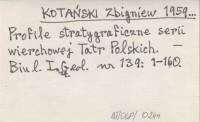 KOTAŃSKI Zbigniew 1959...
Profile stratygraficzne serii
wierchowej Tatr Polskich. —
Biul. Inst. Geol. nr 139: 1-160